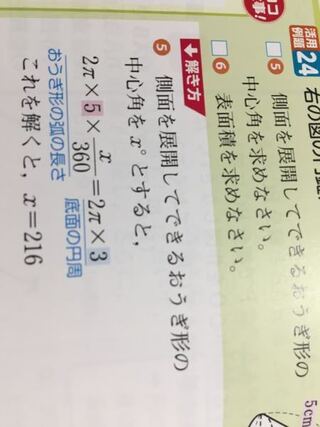 活用
例題
24
右の図の円錐
5 側面を展開してできるおうぎ形の
中心角を求めなさい。
6 表面積を求めなさい。
解き方
5 側面を展開してできるおうぎ形の
中心角をx°とすると,
2π×5×x/360=2π×3
おうぎ形の弧の長さ 底面の円周
これを解くと, x=216
5cm